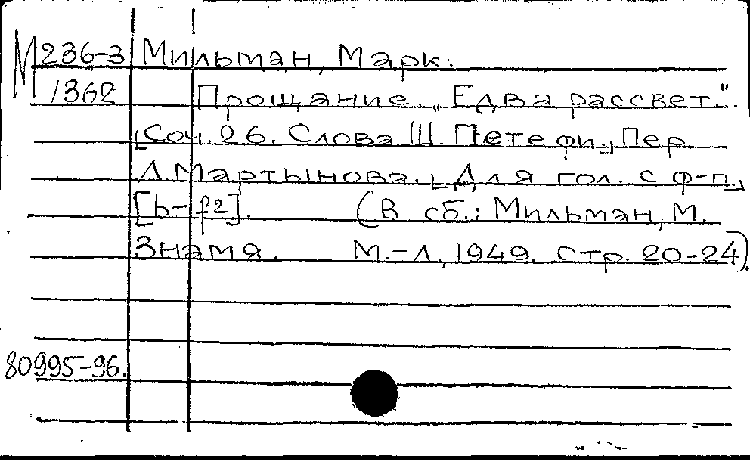 М 236-3 Мильман, Марк.
1362 Прощание „Едва рассвет.."
[Соч. 26. Слова Ш. Петефи., Пер.
Л. Мартынова., Для гол. с ф-п.,]
[b-f2]. (В сб.: Мильман, М.
Знамя. М.-Л, 1949. Стр. 20-24).
80995-96.